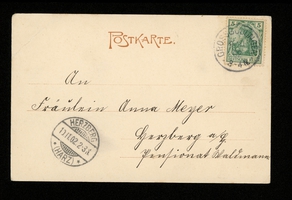 POSTKARTE.
An
Fräulein Anna Meyer
Herzberg a/H
Pensionat Waldmann
HERZBERG
(HARZ)